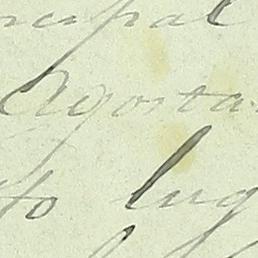 ncipal
Agosta
to lug